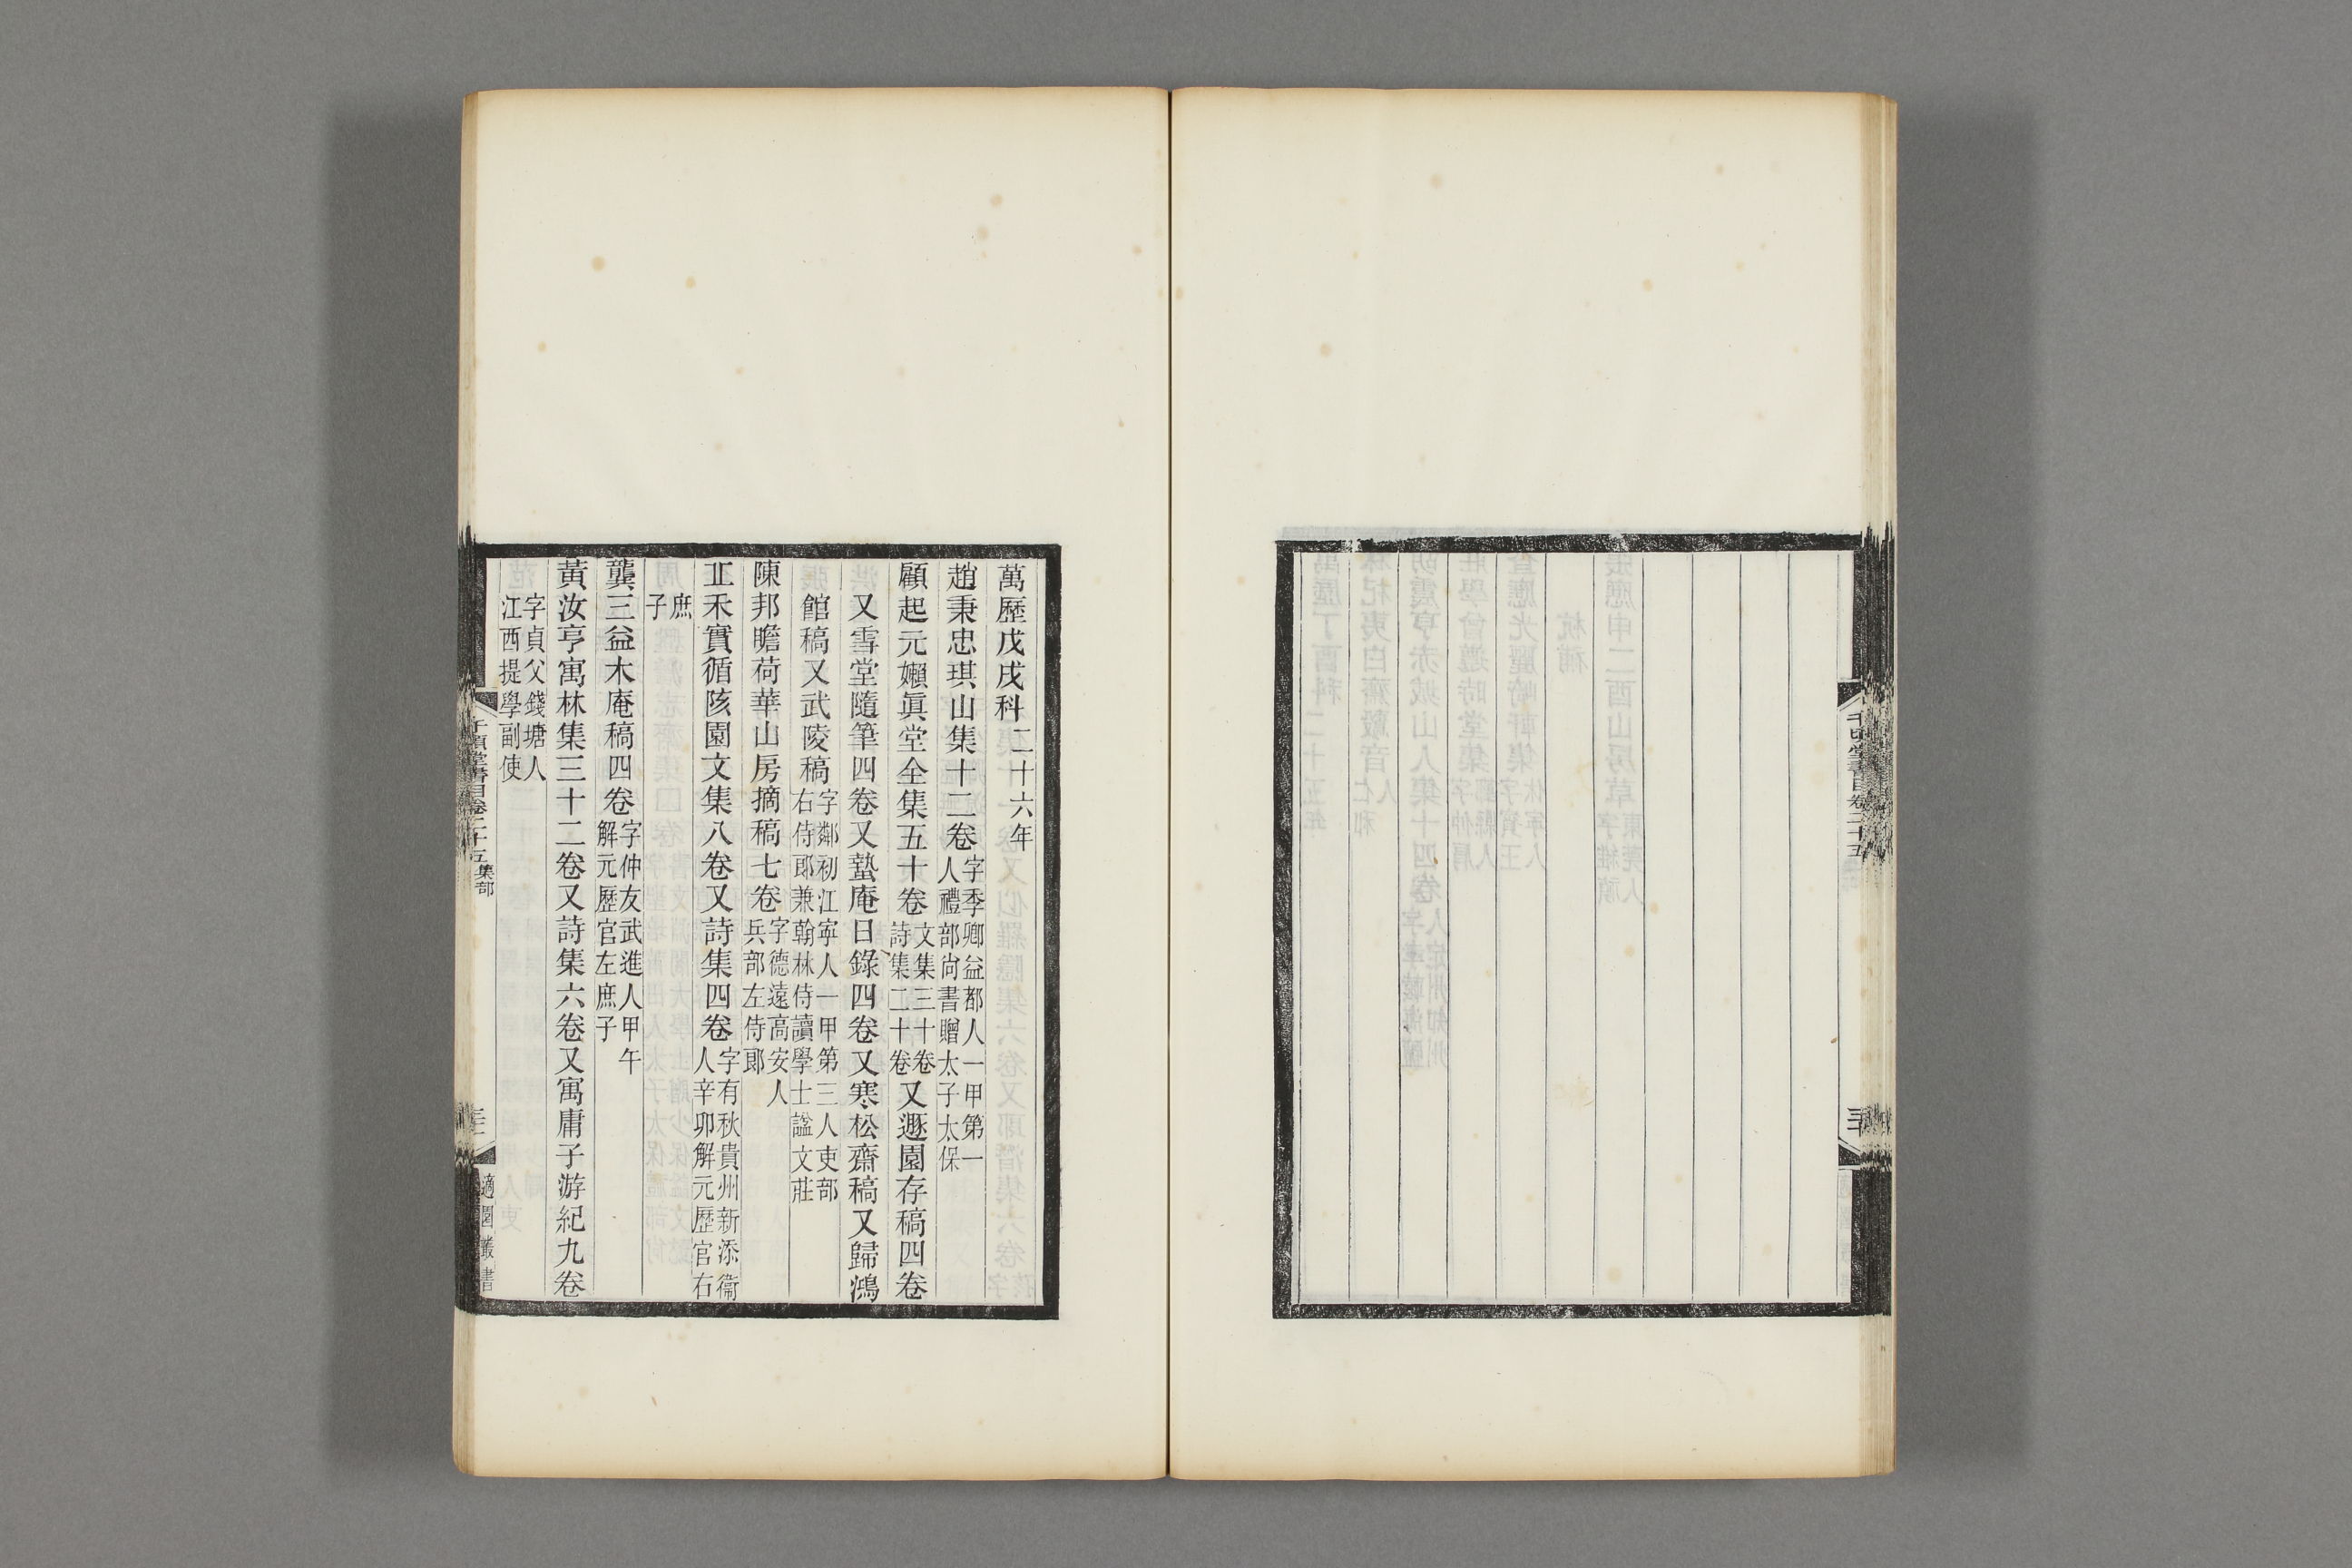 萬歷戊戌科二十六年
趙秉忠𤪌山集十二卷字季卿益都人一甲第一人禮部尚書贈太子太保
顧起元嬾眞堂全集五十卷文集三十卷詩集二十卷又遯園存稿四卷
又雪堂隨筆四卷又蟄庵日錄四卷又寒松齋稿又歸鴻
館稿又武陵稿字鄰初江寧人一甲第三人吏部右侍郎兼翰林侍讀學士諡文莊
陳邦瞻荷華山房摘稿七卷字德遠高安人兵部左侍郎
丘禾實循陔園文集八卷又詩集四卷字有秋貴州新添衞人辛卯解元歷官右
庶子
龔三益木庵稿四卷字仲友武進人甲午解元歷官左庶子
黃汝亨寓林集三十二卷又詩集六卷又寓庸子游紀九卷
字貞父錢塘人江西提學副使
千頃堂書目卷二十五 集部
適園叢書